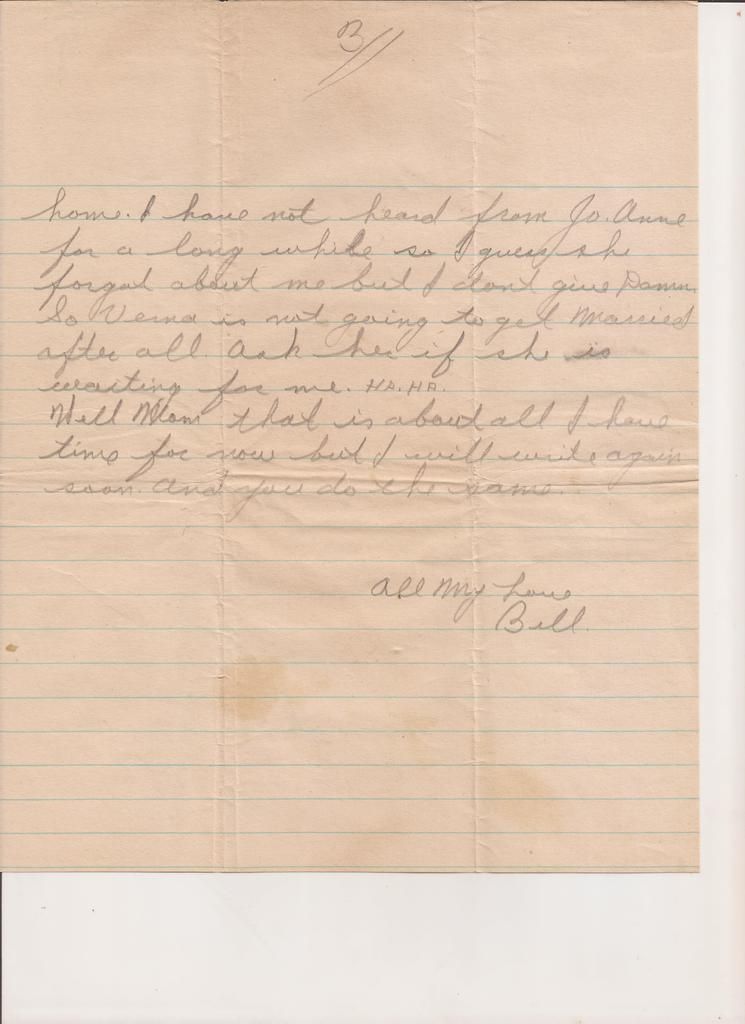 3//
home. I have not heard from Jo. Anne
for a long while so I guess she
forgot about me but I dont give Damn.
So Verna is not going to get Married
after all. Ask her if she is
waiting for me. HA. HA.
Well Mom that is about all I have
time for now but I will write again
soon. And you do the same.
All My Love
Bill.